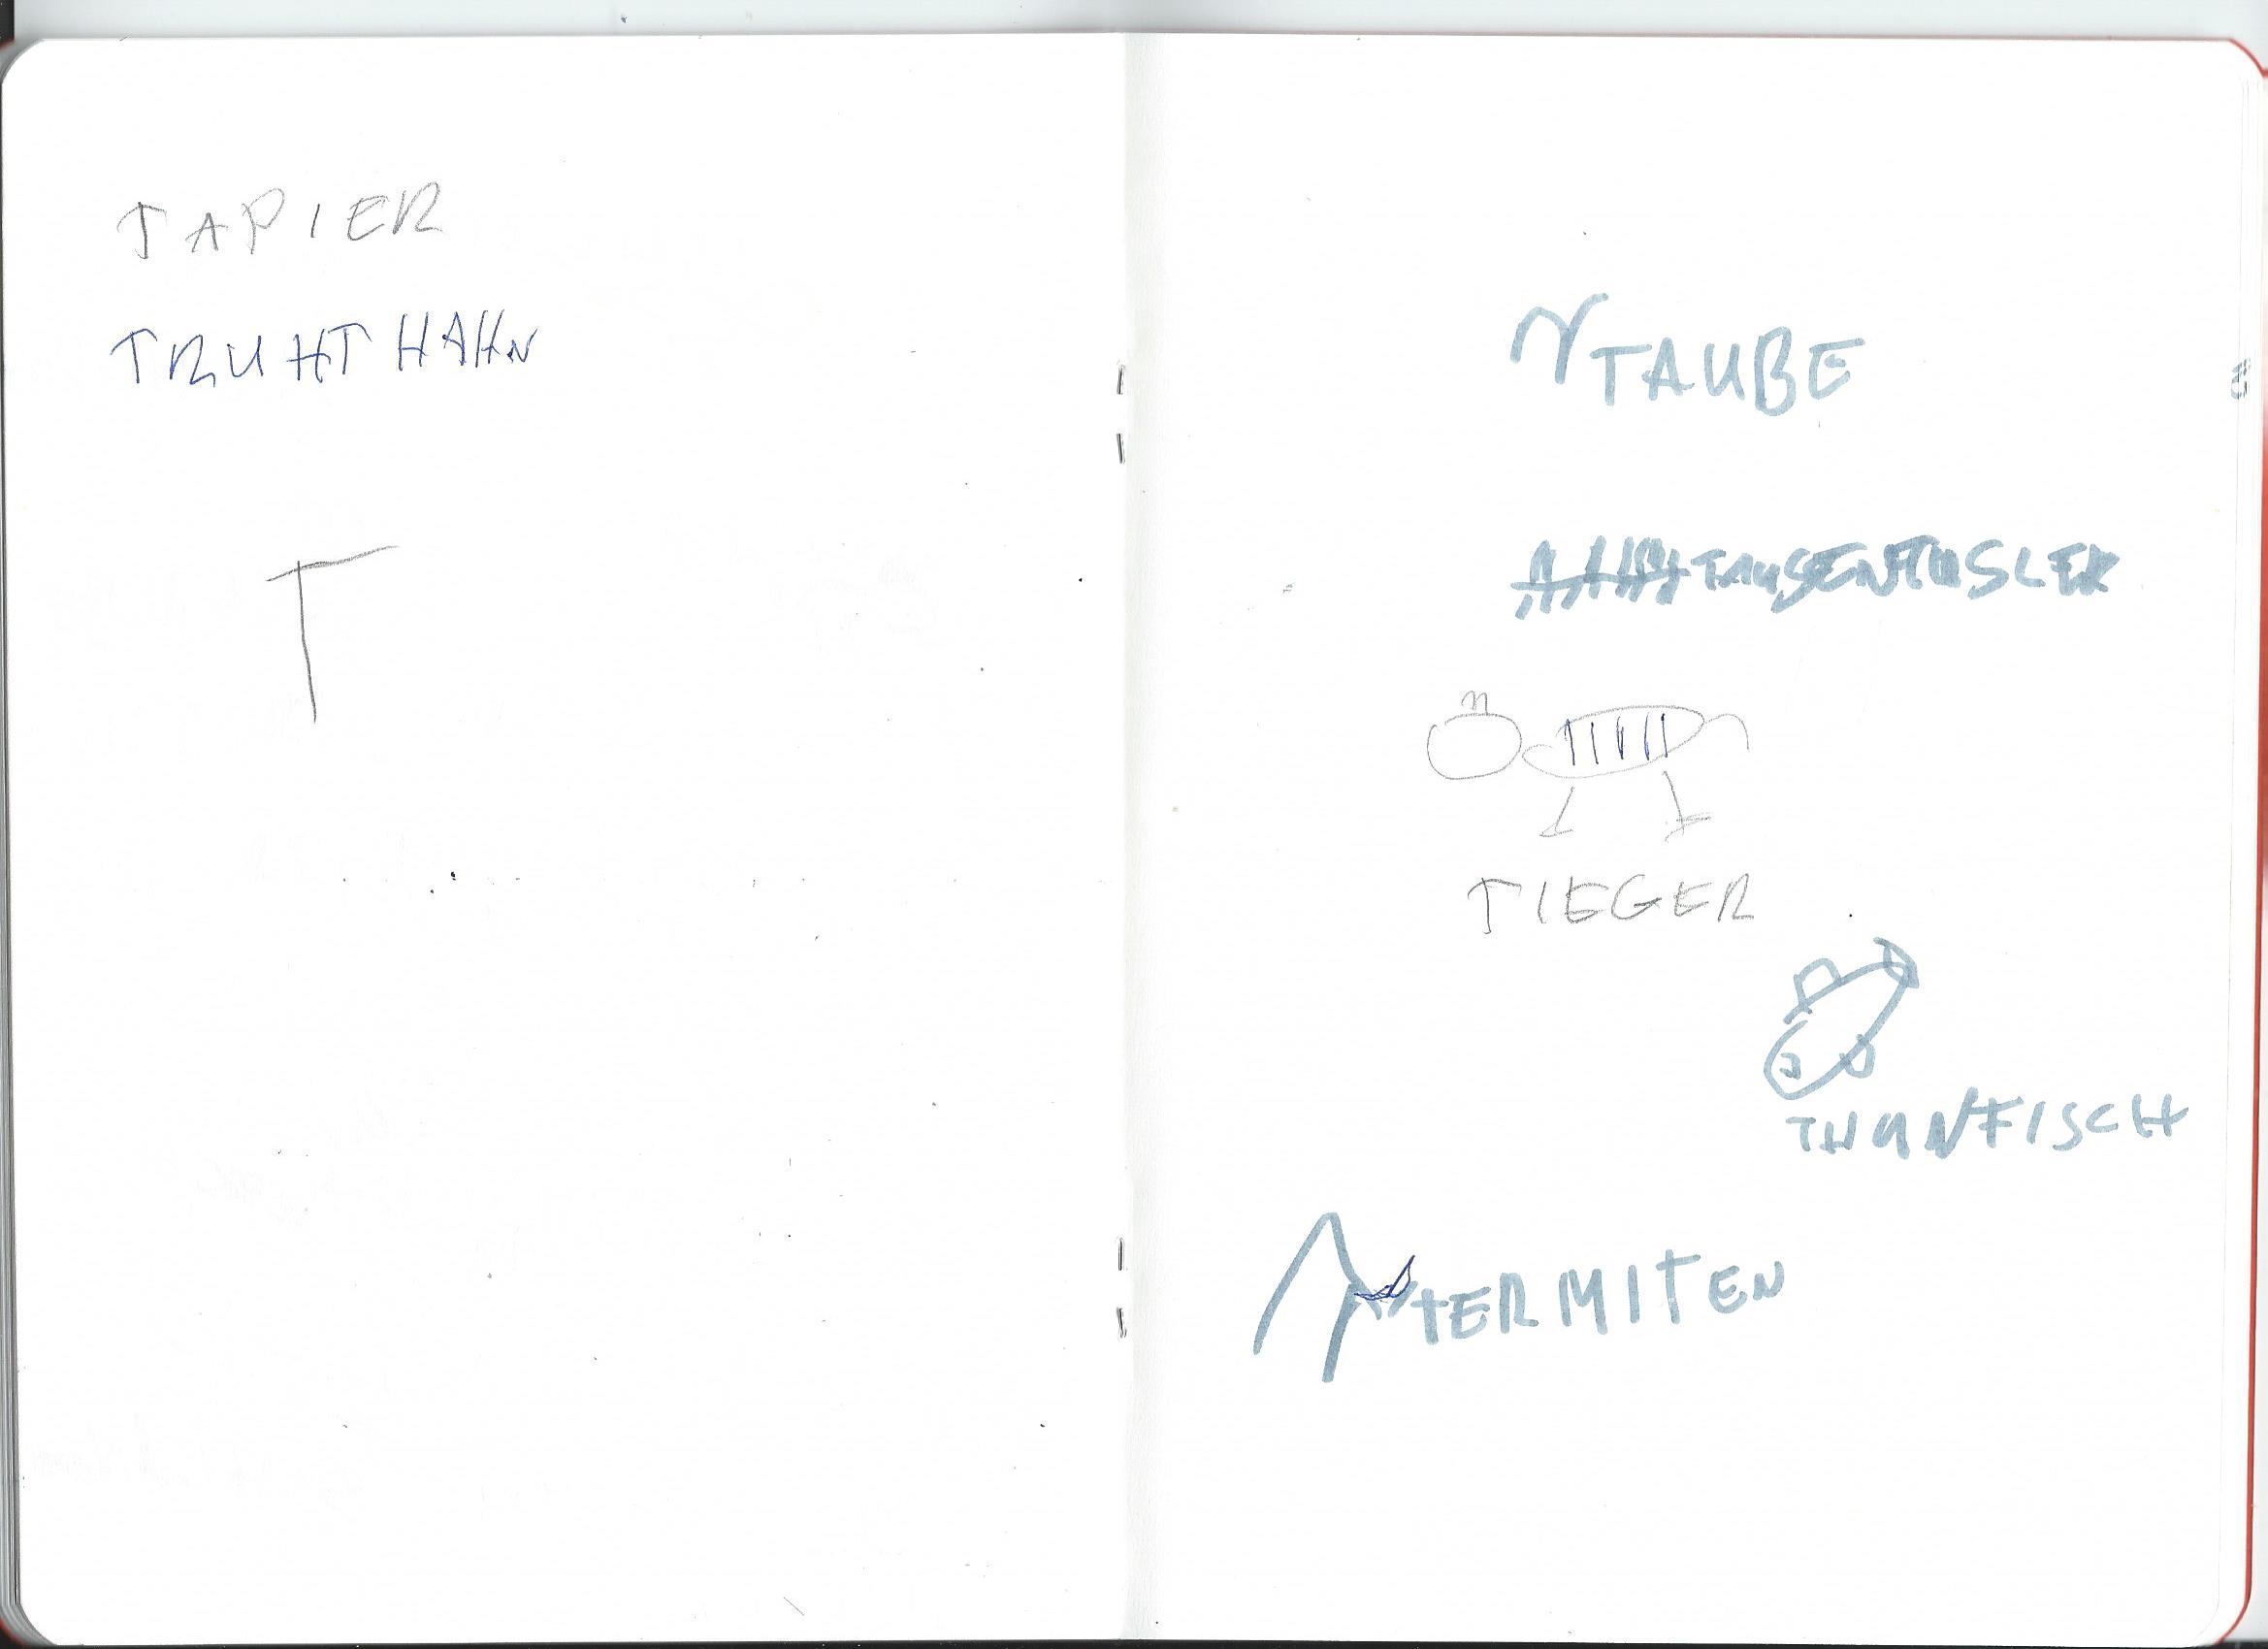 TAPIER
TRUHTHAHN
T
TAUBE
TAUSENTUSLER
TIEGER
THUNFISCH
TERMITEN